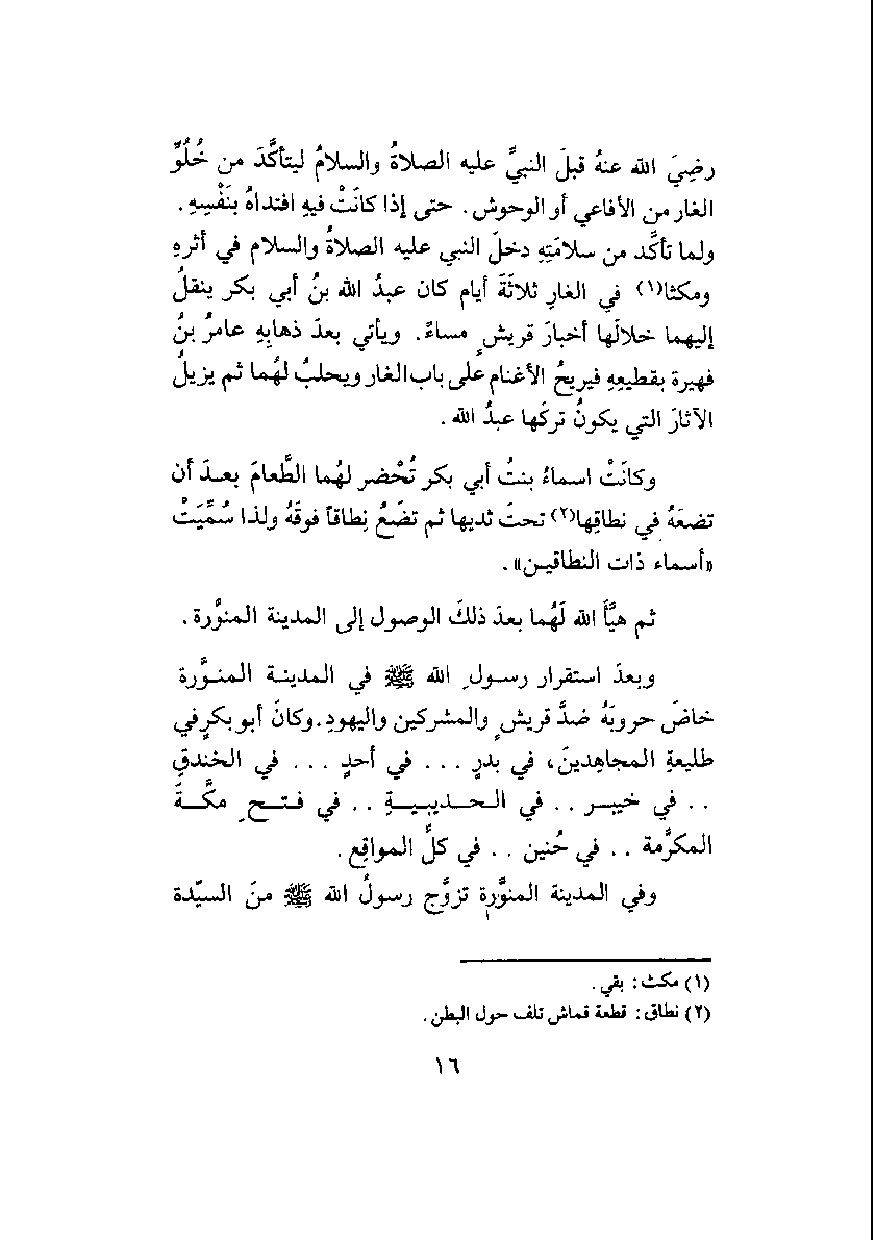 رضِيَ الله عنهُ قبلَ النبيَّ عليه الصلاةُ والسلامُ ليتأكَّدَ من خُلُوِّ
الغار من الأفاعي أو الوحوش . حتى إذا كانَتْ فيهِ افتداهُ بنَفْسِهِ .
ولما تأكَّد من سلامَتِهِ دخلَ النبي عليه الصلاةُ والسلام في أثرهِ
ومكثا(١) في الغارِ ثلاثَةَ أيام كان عبدُ الله بنُ أبي بكر ينقلُ
إليهما خلالَها أخبارَ قريشٍ مساءً. ويأتي بعدَ ذهابِهِ عامرُ بنُ
فهيرة بقطيعِهِ فيريحُ الأغنام على باب الغار ويحلبُ لهُما ثم يزيلُ
الآثارَ التي يكونُ تركَها عبدُ الله .
وكانَتْ اسماءُ بنتُ أبي بكر تُحْضر لهُما الطَّعامَ بعـدَ أن
تضعَهُ في نطاقِها(٢) تحتَ ثديها ثم تضَعُ نِطاقاً فوقَهُ ولذا سُمِّيَتْ
«أسماء ذات النطاقيـن» .
ثم هيَّأَ الله لَهُما بعدَ ذلكَ الوصول إلى المدينة المنورَّة .
وبعدَ استقرار رسـولِ الله ﷺ في المدينـة المنـورَّة
خاضَ حروبَهُ ضدَّ قريشٍ والمشركين واليهودِ. وكانَ أبو بكرٍ في
طليعةِ المجاهدينَ، في بدرٍ . . . في أحدٍ . . . في الخندقِ
. . في خيبـر . . في الـحـديـبـيـةِ . . في فـتـحِ مكَّـةَ
المكرَّمة . . في حُنين . . في كلِّ المواقِع .
وفي المدينة المنورَّةِ تزوَّج رسولُ الله ﷺ منَ السيّدة
(١) مكث : بقي .
(٢) نطاق : قطعة قماش تلف حول البطن .
١٦